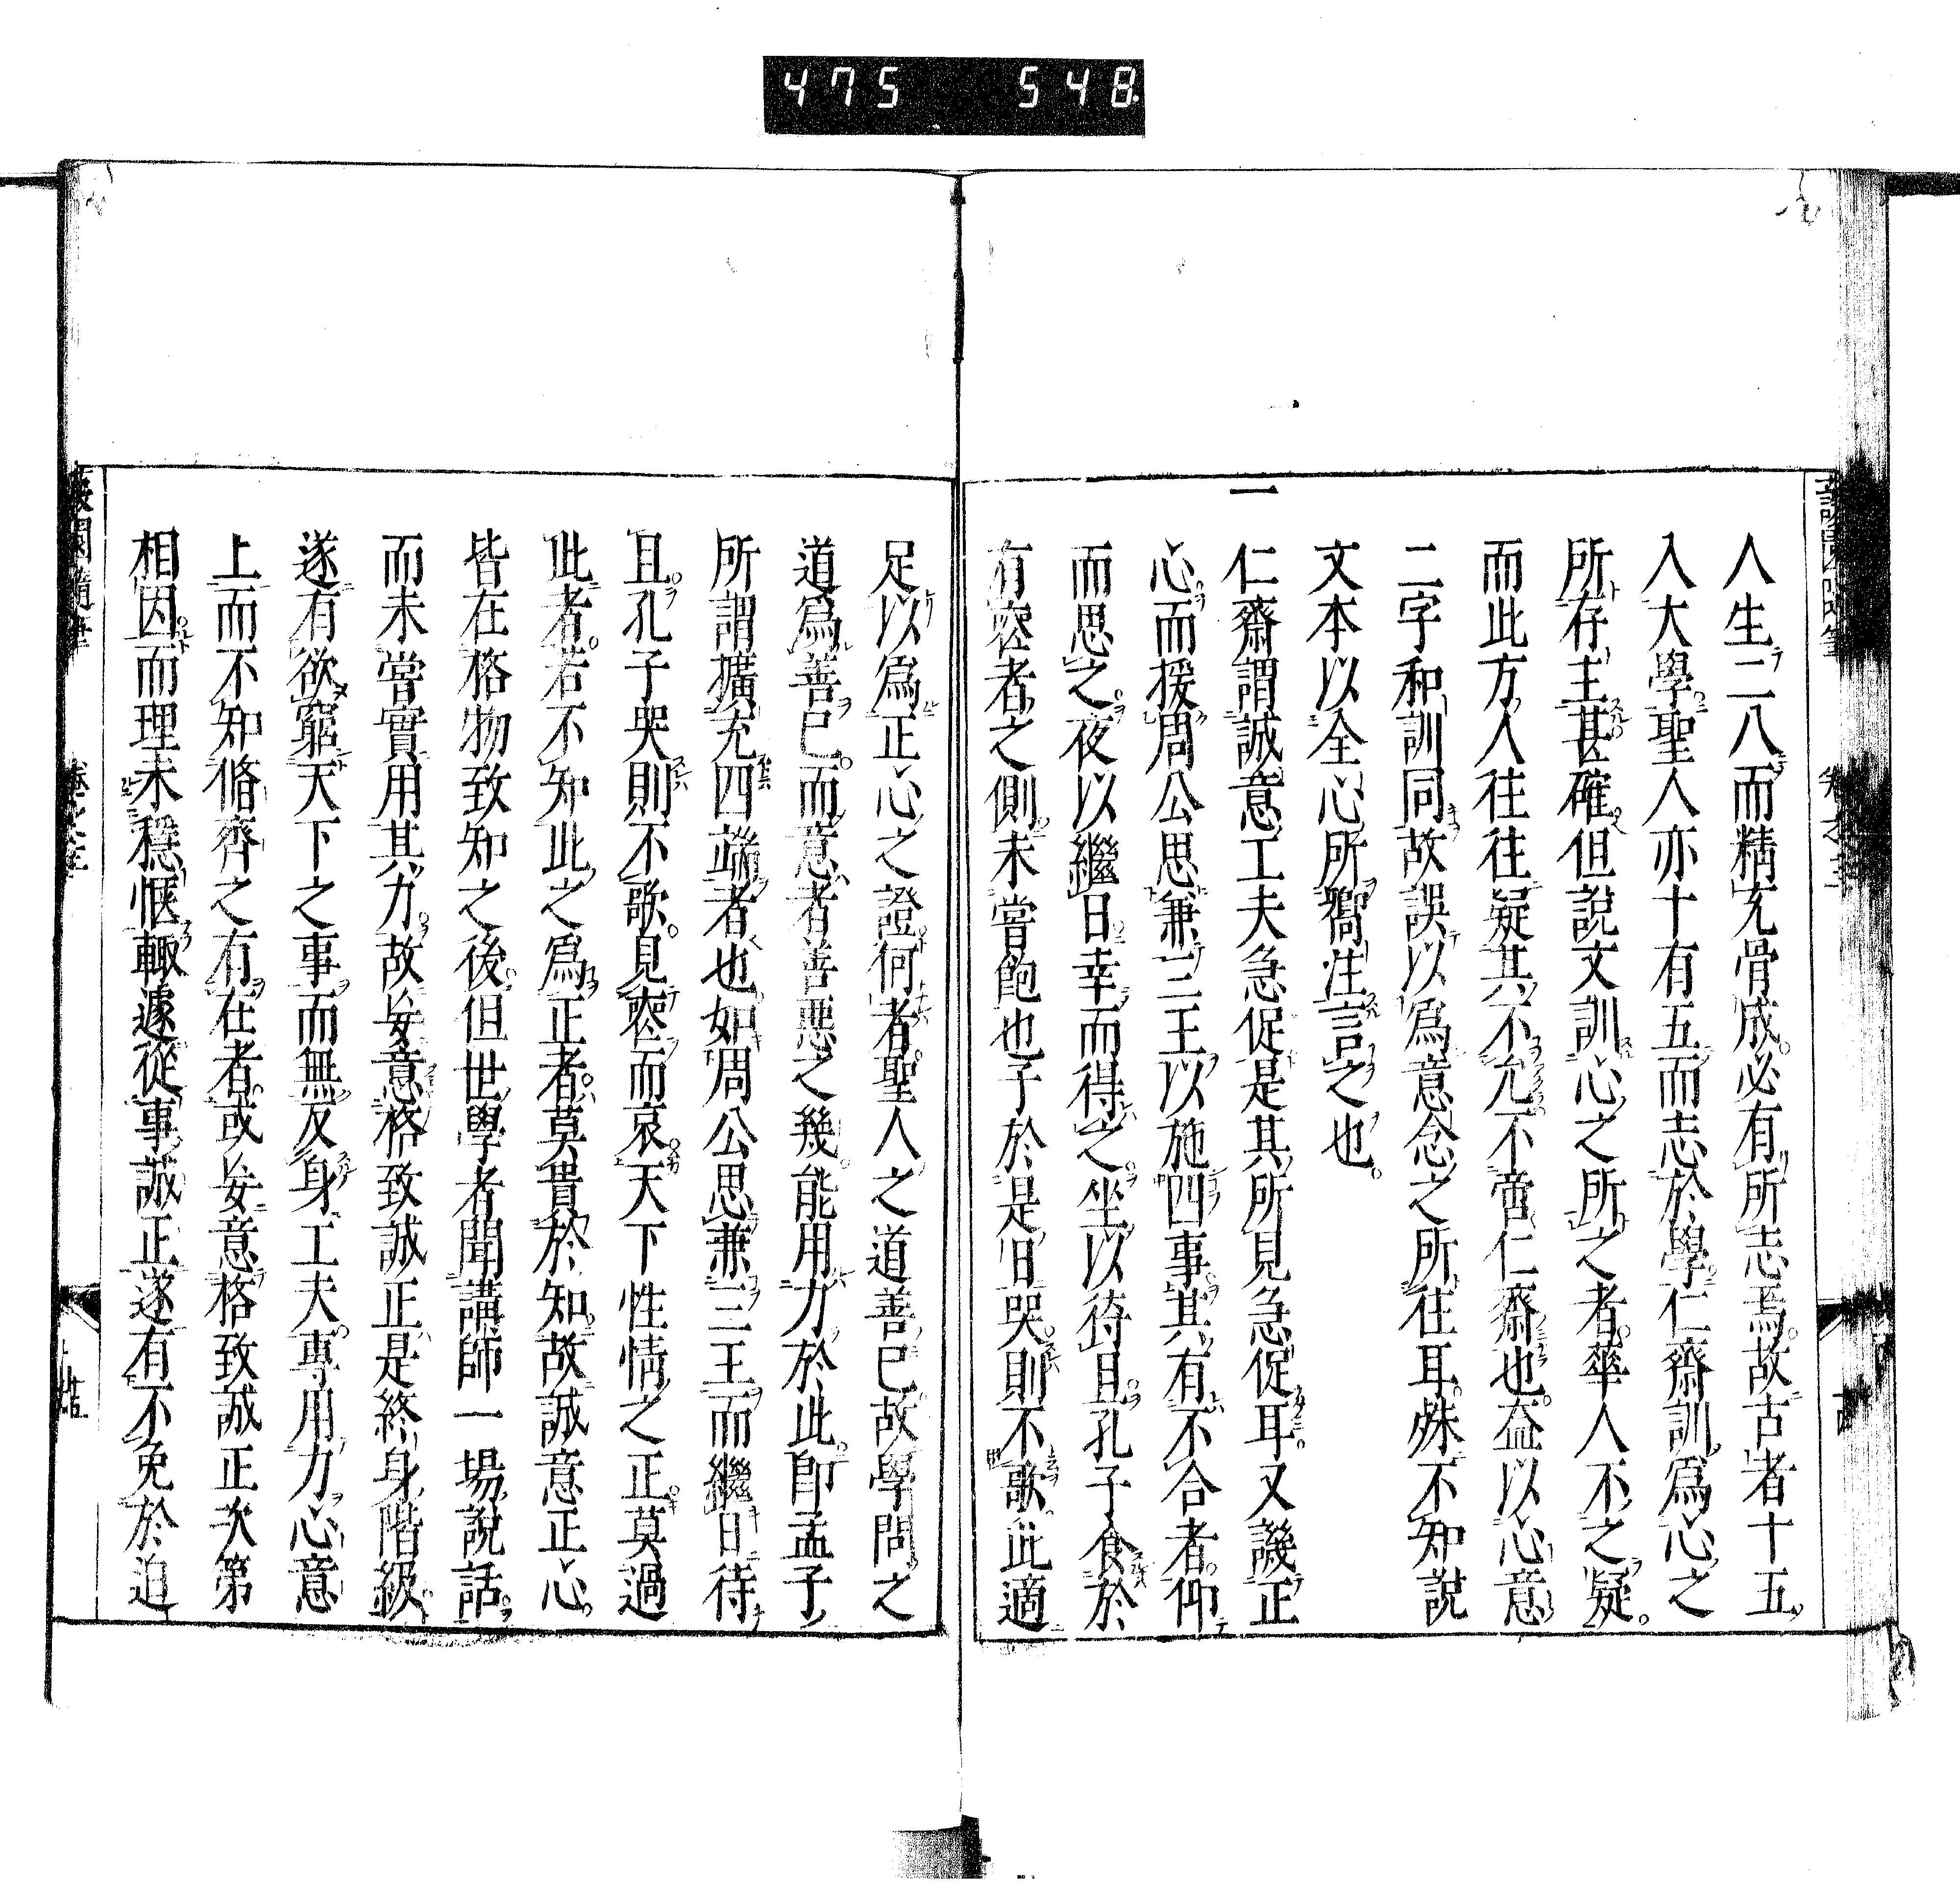 475 548
人生二八而精充骨成必有所志焉故古者十五
入大學聖人亦十有五而志於學仁齋訓爲心之
所存主甚確但說文訓心之所之者華人不之疑
而此方人往往疑其不允不啻仁齋也益以心意
二字和訓同故誤以爲意念之所往耳殊不知說
文本以全心所嚮注言之也
一
仁齋謂誠意工夫急促是其所見急促耳又譏正
心而援周公思兼三王以施四事其有不合者仰
而思之夜以繼日幸而得之坐以待旦孔子食於
有喪者之側未嘗飽也子於是日哭則不歌此適
足以爲正心之證何者聖人之道善已故學問之
道爲善已而意者善惡之幾能用力於此卽孟子
所謂擴充四端者也如周公思兼三王而繼日待
旦孔子哭則不歌見喪而哀天下性情之正莫過
此者若不知此之爲正者莫貴於知故誠意正心
皆在格物致知之後但世學者聞講師一場說話
而未嘗實用其力故妄意格致誠正是終身階級
遂有欲窮天下之事而無反身工夫專用力心意
上而不知脩齊之有在者或妄意格致誠正次第
相因而理未穩愜輙遽從事誠正遂有不免於迫
蘐園隨筆 卷之三